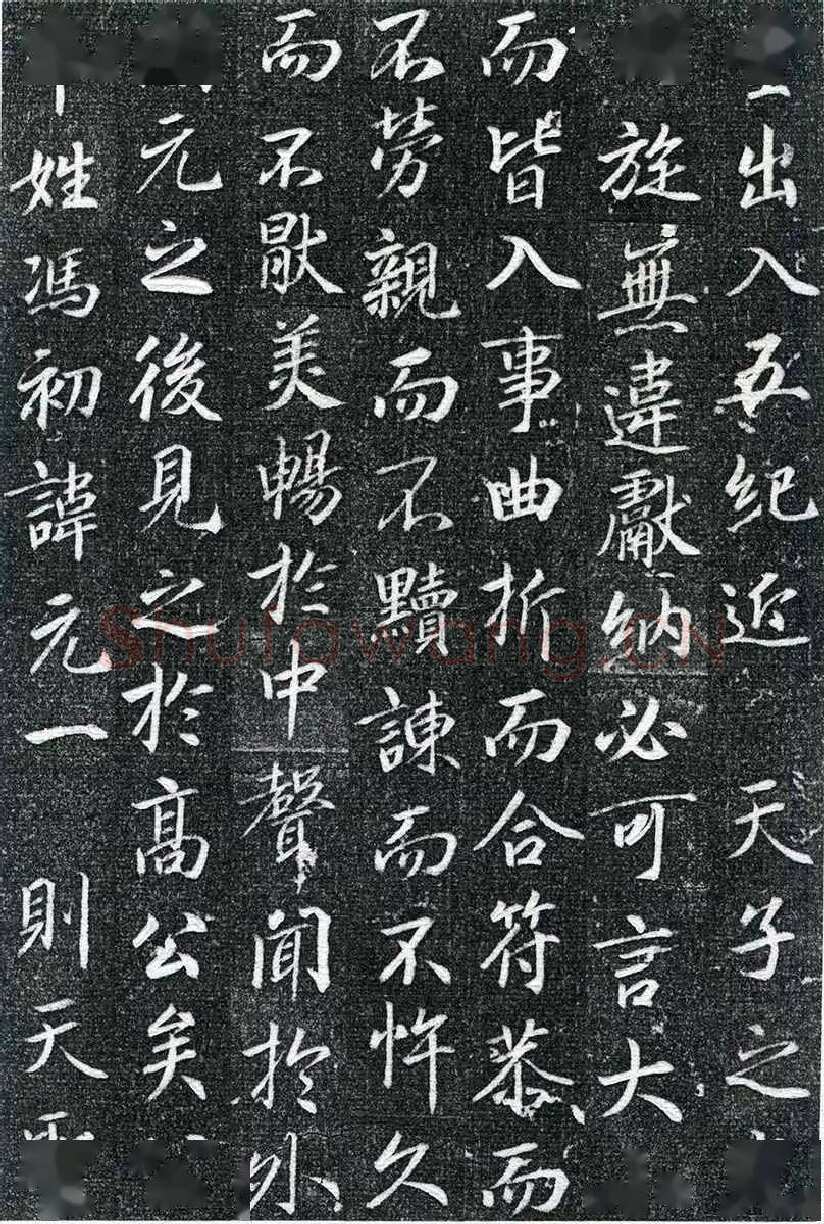 出入五紀近 天子之
旋無違獻納必可言大
而皆入事曲折而合符恭而
不勞親而不黷諫而不忤久
而不猒美暢於中聲聞於外
元之後見之於高公矣
姓馮初諱元一 則天
Shufawang.CN